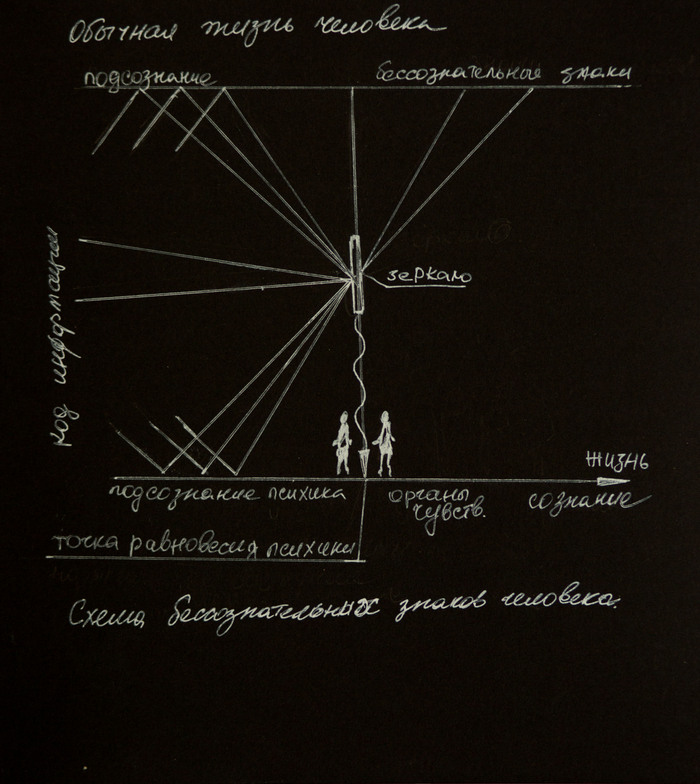 Обычная жизнь человека
подсознание бессознательные знаки
код информации
зеркало
жизнь
подсознание психика органы чувств. сознание
точка равновесия психики
Схема бессознательных знаков человека.